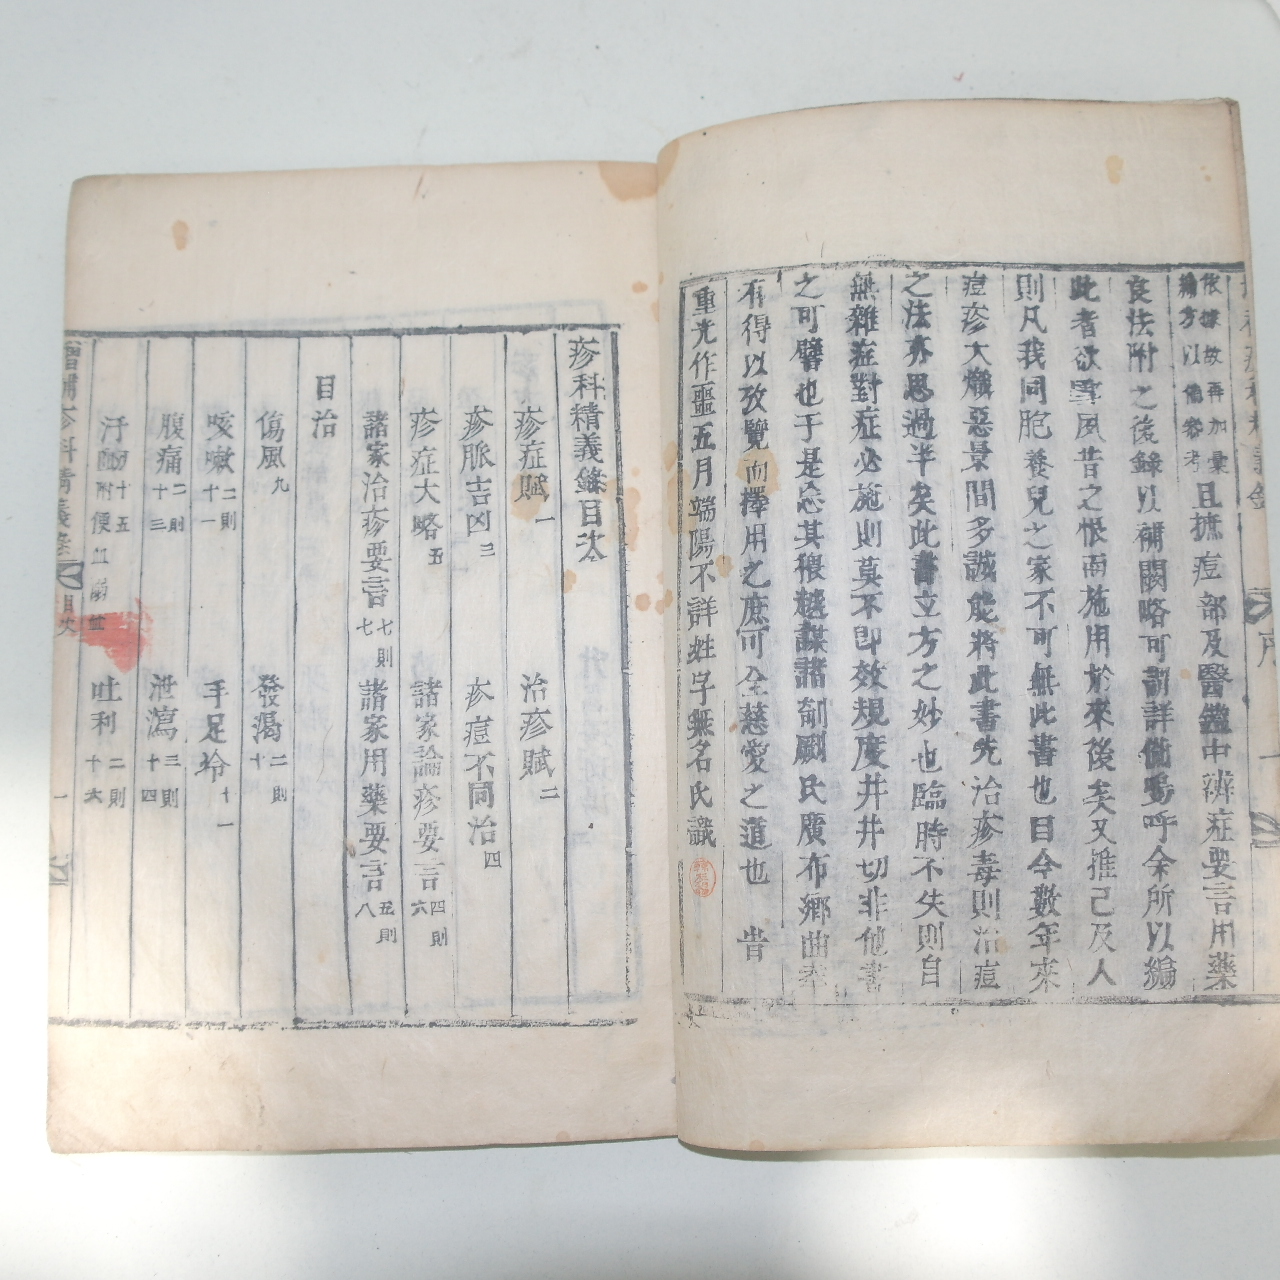 依據故再加彙
編方以備參考
且摭痘部及醫鑑中辨症要言用藥
良法附之後錄以補闕略可謂詳備嗚呼余所以編
此者欲雪風昔之恨而施用於來後矣又推己及人
則凡我同胞養兒之家不可無此書也目今數年來
痘疹大熾惡景間多誠能將此書先治疹毒則治痘
之法亦思過半矣此書立方之妙也臨時不失則自
無雜症對症必施則莫不即效規度井井切非他書
之可譬也于是忘其猥越謀諸剞劂氏廣布鄉曲
有得以攷覽而擇用之庶可全慈愛之道也 昔
重光作噩五月端陽不詳姓字無名氏識
序
疹科精義錄目次
疹症賦一 治疹賦二
疹脈吉凶三 疹痘不同治四
疹症大略五 諸家論疹要言四則六
諸家治疹要言七則七 諸家用藥要言五則八
目治
傷風九 發渴二則十
咳嗽二則十一 手足冷十一
腹痛二則十三 泄瀉三則十四
汗衄附便血溺血十五 吐利二則十六
增補疹科精義錄 目次 一